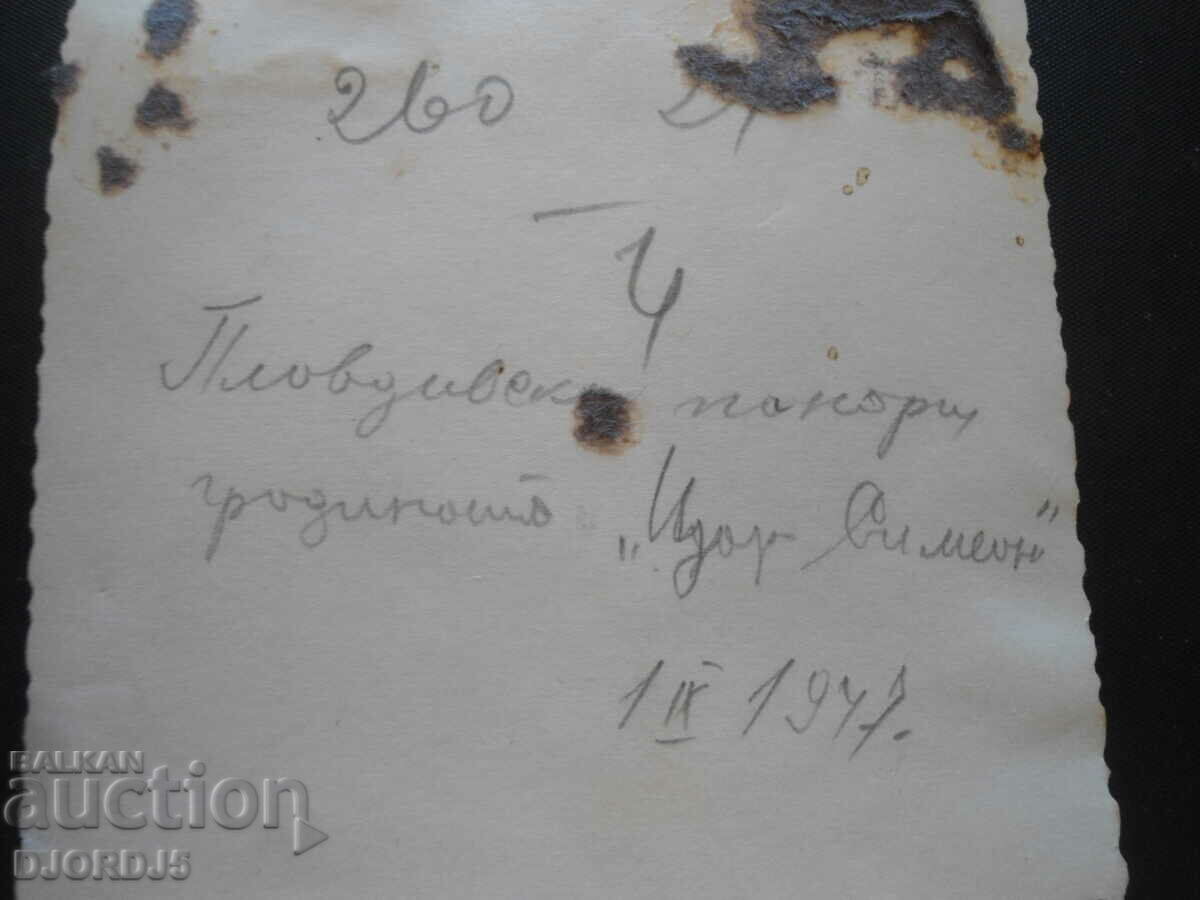 260 21
4
Пловдивск панорщ
градината „Цар Симеон"
1 IX 1947.
BALKAN
auction
DJORDJ5